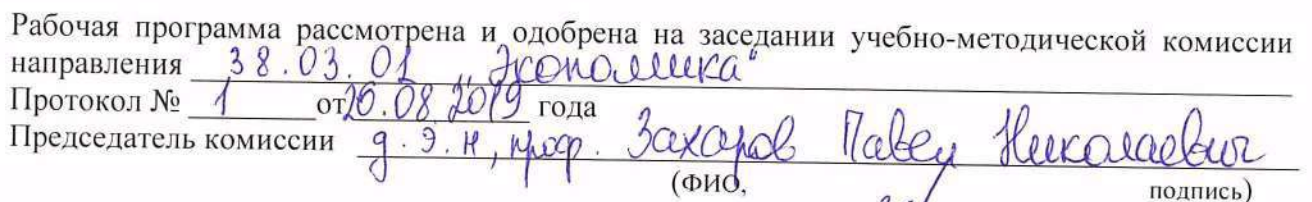 Рабочая программа рассмотрена и одобрена на заседании учебно-методической комиссии
направления 38.03.01 „Экономика“
Протокол № 1 от 26.08.2019 года
Председатель комиссии д.э.н, проф. Захаров Павел Николаевич
(ФИО, подпись)